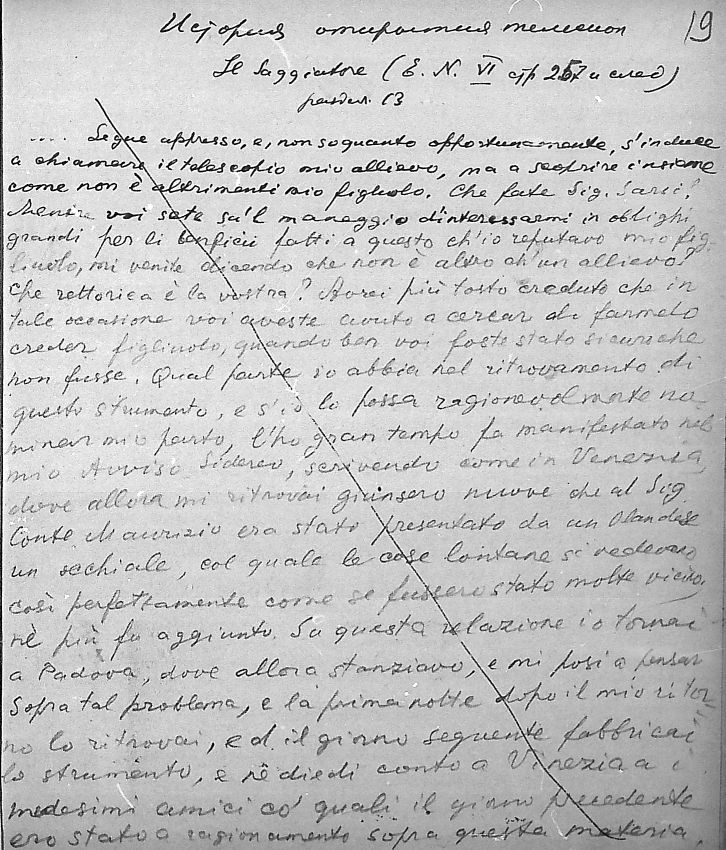 19
История открытия телескоп
Il Saggiatore (E. N. VI стр 257 и след)
раздел 13
.... Segue appresso, e, non so quanto opportunamente, s'induce
a chiamare il telescopio mio allievo, ma a scoprire insieme
come non è altrimenti mio figliolo. Che fate Sig. Sarsi?
Mentre voi sete su'l maneggio d'interessarmi in oblighi
grandi per li benficii fatti a questo ch'io reputavo mio fig-
liuolo, mi venite dicendo che non è altro ch'un allievo?
Che rettorica è la vostra? Avrei più tosto creduto che in
tale occasione voi aveste avuto a cercar di farmelo
creder figliuolo, quando ben voi foste stato sicuro che
non fusse. Qual parte io abbia nel ritrovamento di
questo strumento, e s'io lo possa ragionevolmente no
minar mio parto, l'ho gran tempo fa manifestato nel
mio Avviso Sidereo, scrivendo come in Venezia,
dove allora mi ritrovai giunsero nuove che al Sig.
Conte Maurizio era stato presentato da un Olandese
un occhiale, col quale le cose lontane si vedevano
così perfettamente come se fussero stato molte vicino,
nè più fu aggiunto. Su questa relazione io tornai
a Padova, dove allora stanziavo, e mi posi a pensar
sopra tal problema, e la prima notte dopo il mio ritor-
no lo ritrovai, ed il giorno seguente fabbricai
lo strumento, e ne diedi conto a Vinezia a i
medesimi amici co' quali il giorno precedente
ero stato a ragionamento sopra questa materia.